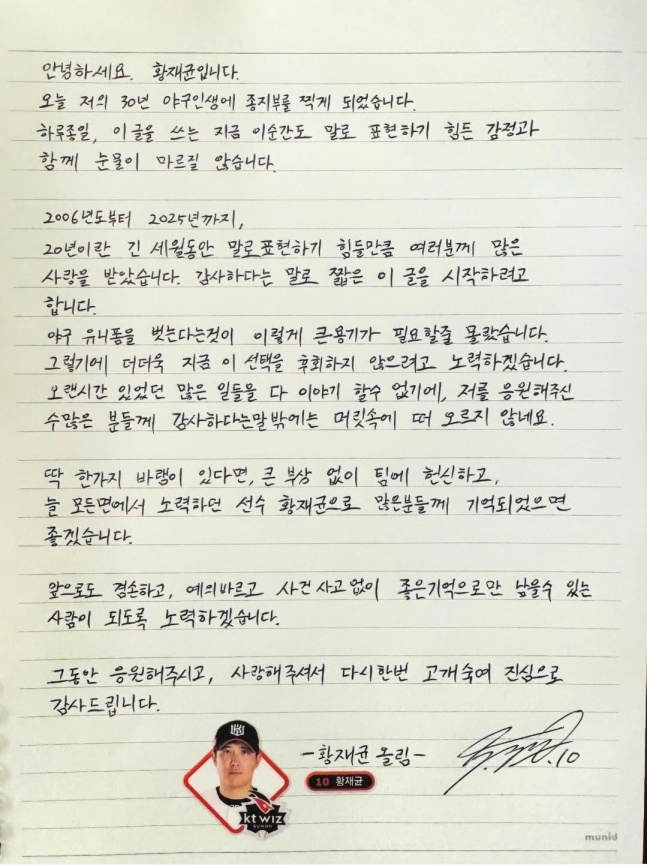 안녕하세요. 황재균입니다.
오늘 저의 30년 야구인생에 종지부를 찍게 되었습니다.
하루종일, 이글을 쓰는 지금 이순간도 말로 표현하기 힘든 감정과
함께 눈물이 마르질 않습니다.
2006년도부터 2025년까지,
20년이란 긴 세월동안 말로표현하기 힘들만큼 여러분께 많은
사랑을 받았습니다. 감사하다는 말로 짧은 이 글을 시작하려고
합니다.
야구 유니폼을 벗는다는것이 이렇게 큰용기가 필요할줄 몰랐습니다.
그렇기에 더더욱 지금 이 선택을 후회하지 않으려고 노력하겠습니다.
오랜시간 있었던 많은 일들을 다 이야기 할수 없기에, 저를 응원해주신
수많은 분들께 감사하다는말밖에는 머릿속에 떠 오르지 않네요.
딱 한가지 바램이 있다면, 큰 부상 없이 팀에 헌신하고,
늘 모든면에서 노력하던 선수 황재균으로 많은분들께 기억되었으면
좋겠습니다.
앞으로도 겸손하고, 예의바르고 사건사고없이 좋은기억으로만 남을수 있는
사람이 되도록 노력하겠습니다.
그동안 응원해주시고, 사랑해주셔서 다시한번 고개숙여 진심으로
감사드립니다.
-황재균 올림-
10 황재균
kt wiz
SUWON
.10
munid